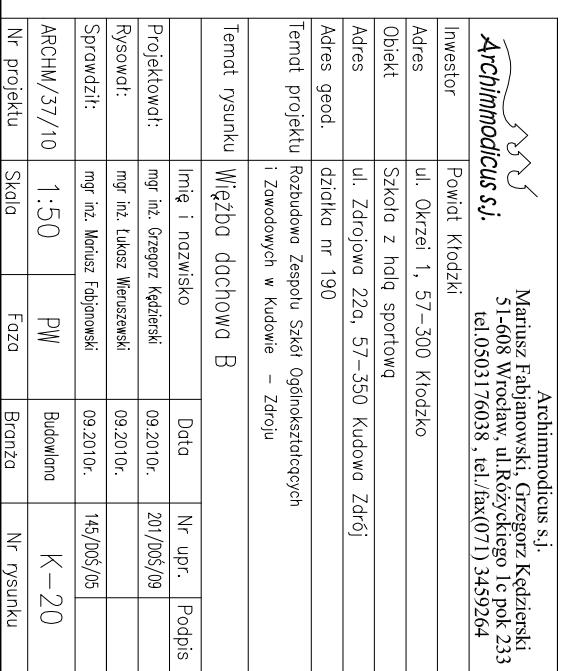 Archimmodicus s.j.
Archimmodicus s.j.
Mariusz Fabjanowski, Grzegorz Kędzierski
51-608 Wrocław, ul.Różyckiego 1c pok 233
tel.0503176038 , tel./fax(071) 3459264
Inwestor Powiat Kłodzki
Adres ul. Okrzei 1, 57-300 Kłodzko
Obiekt Szkoła z halą sportową
Adres ul. Zdrojowa 22a, 57-350 Kudowa Zdrój
Adres geod. działka nr 190
Temat projektu Rozbudowa Zespołu Szkół Ogólnokształcących
i Zawodowych w Kudowie - Zdroju
Temat rysunku Więźba dachowa B
Imię i nazwisko Data Nr upr. Podpis
Projektował: mgr inż. Grzegorz Kędzierski 09.2010r. 201/DOŚ/09
Rysował: mgr inż. Łukasz Wieruszewski 09.2010r.
Sprawdził: mgr inż. Mariusz Fabjanowski 09.2010r. 145/DOŚ/05
ARCHM/37/10 1:50 PW Budowlana K-20
Nr projektu Skala Faza Branża Nr rysunku